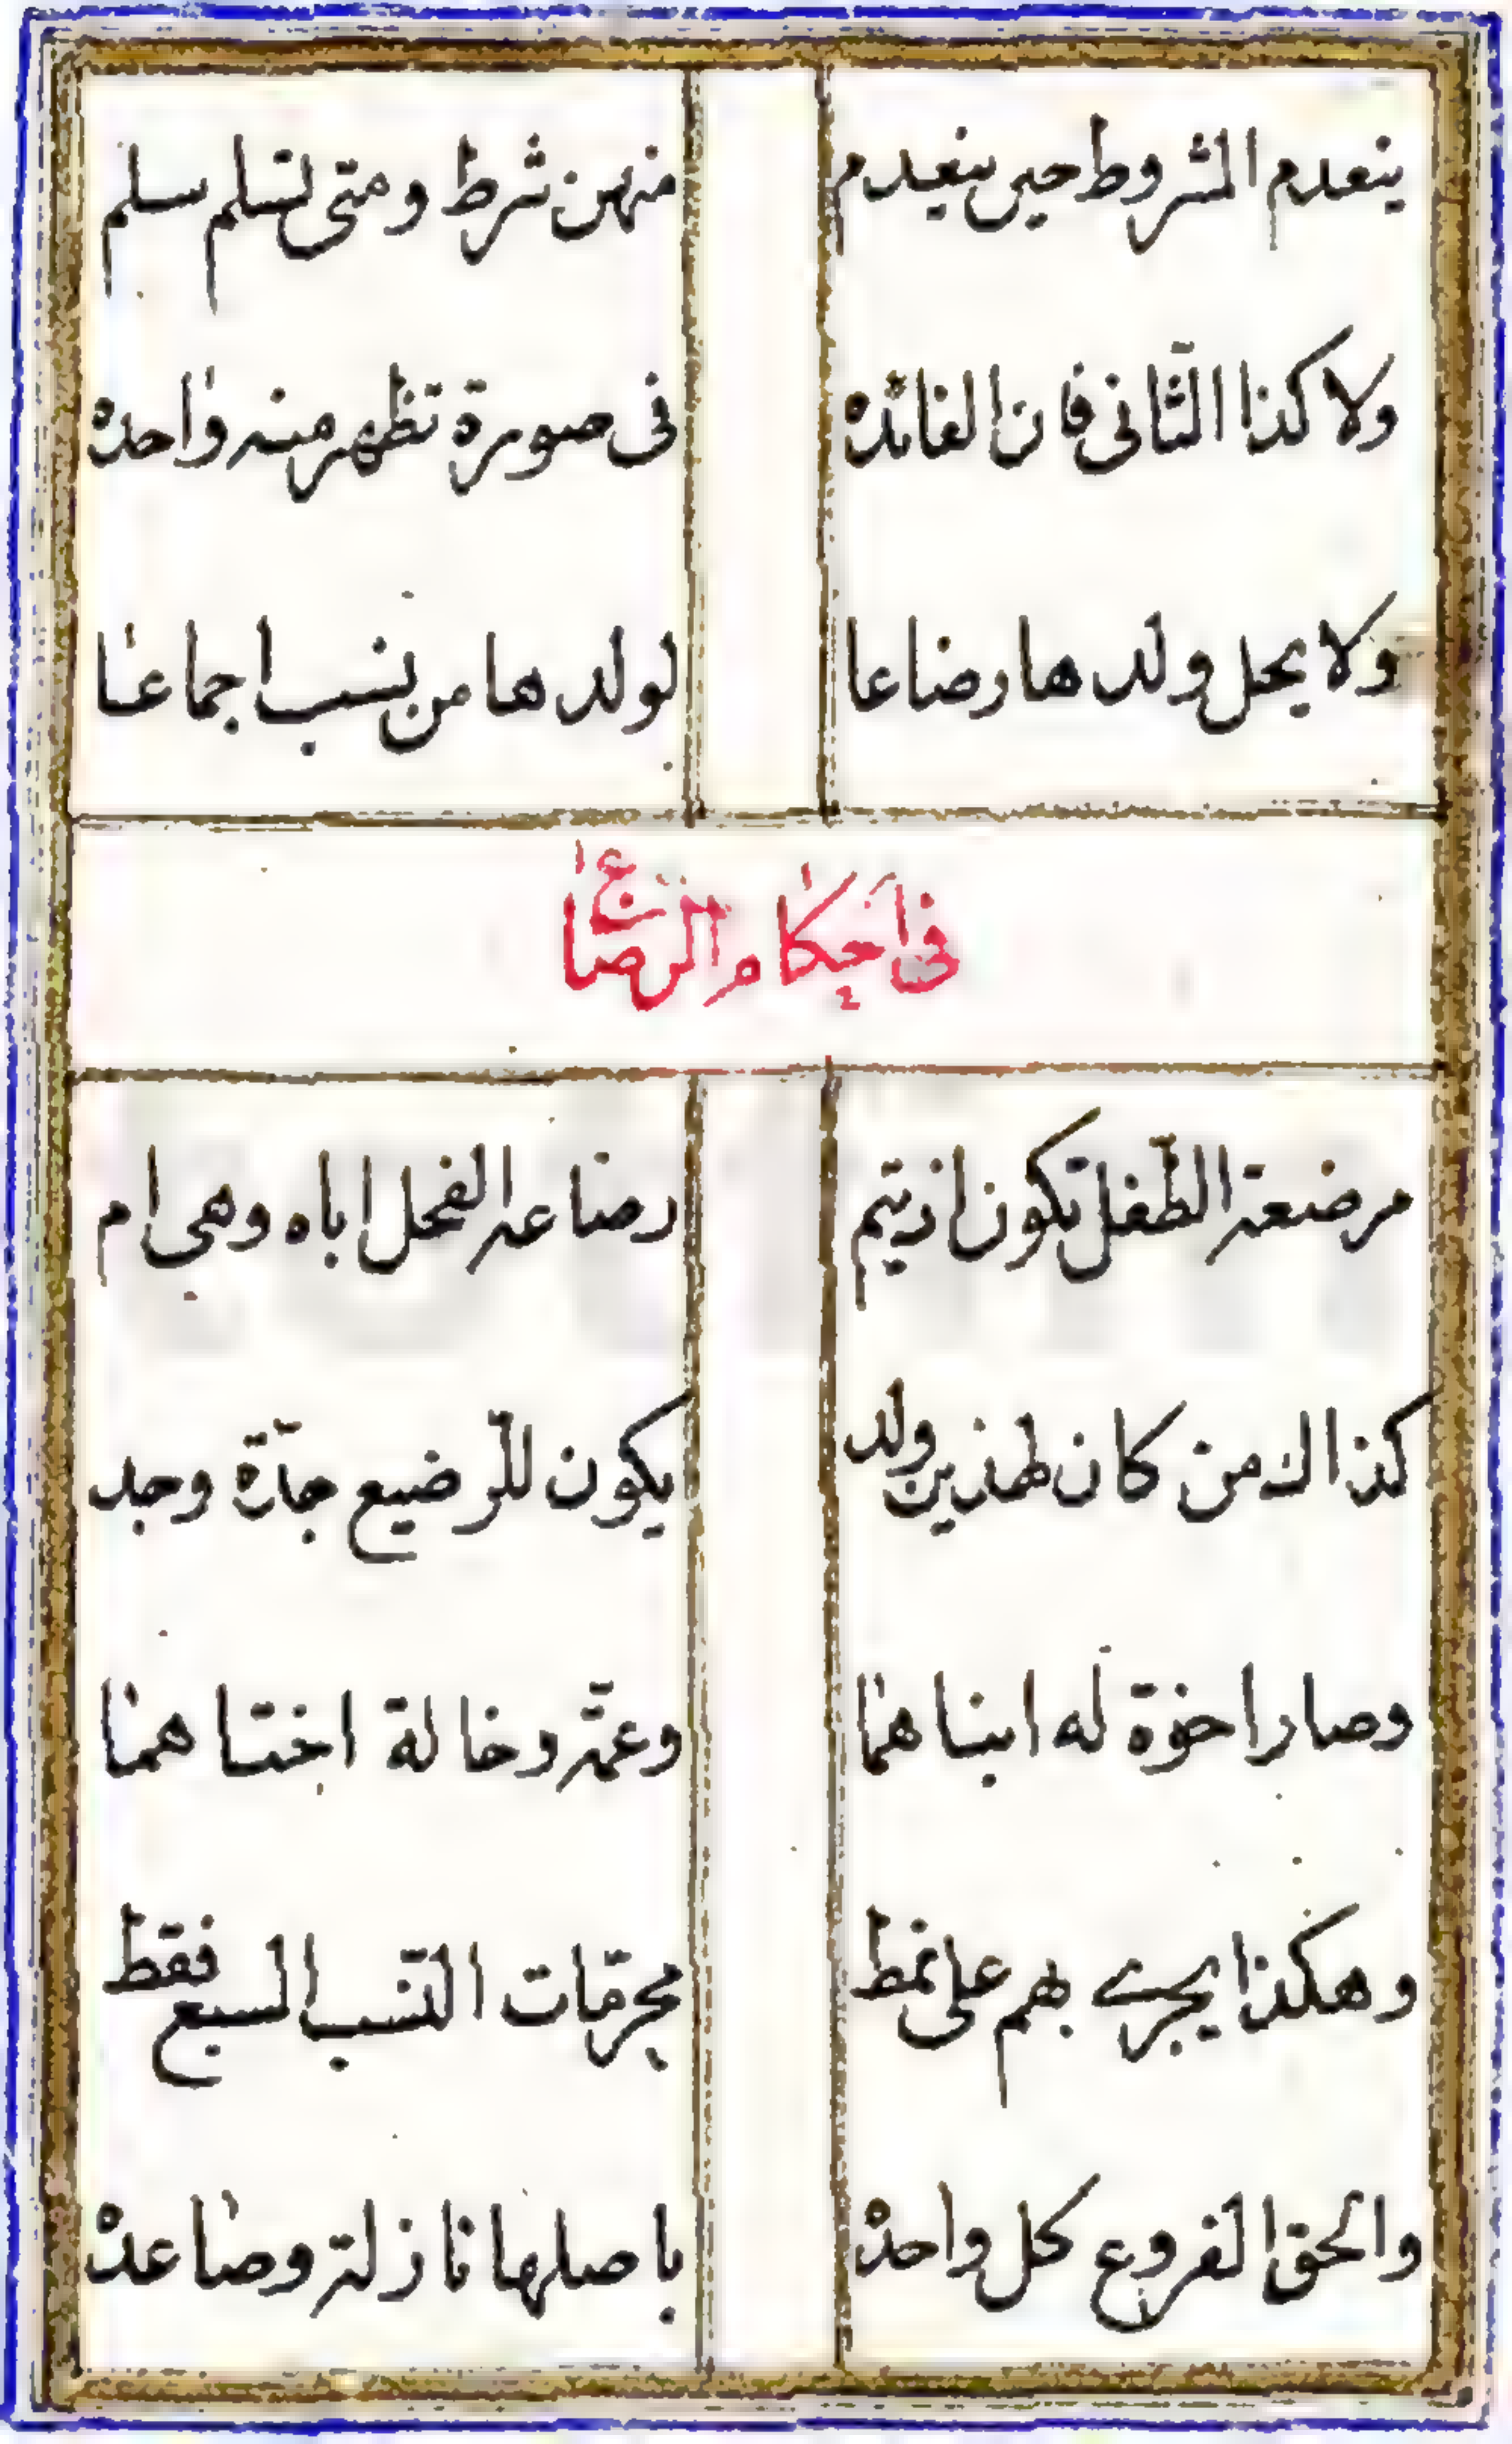 ينعدم المشروط حين ينعدم منهن شرط ومتى تسلم سلم
ولا كذا الثانى فان الفائده فى صورة تظهر منه واحده
ولا يحل ولدها رضاعا لولدها من نسب اجماعا
فى احكام الرضاع
مرضعة الطفل تكون اذ يتم رضاعه الفحل اباه وهى ام
كذاك من كان لهذين ولد يكون للرضيع جدة وجد
وصار اخوة له ابناهما وعمة وخالة اختاهما
وهكذا يجرى بهم على نمط محرمات النسب السبع فقط
والحق الفروع كل واحده باصلها نازلة وصاعده